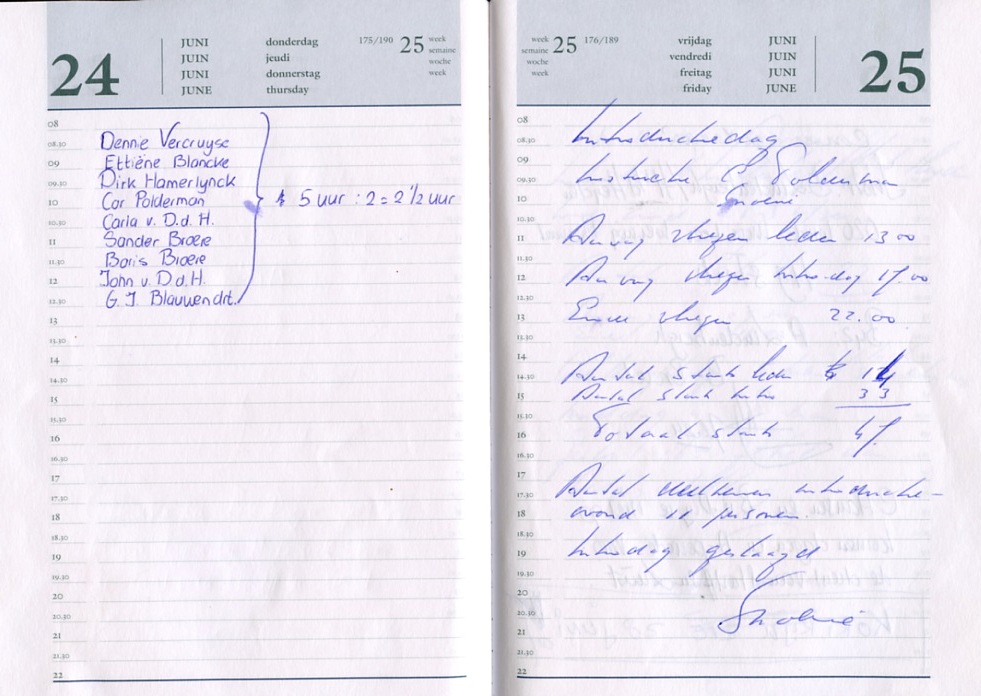 24
JUNI
JUIN
JUNI
JUNE
donderdag
jeudi
donnerstag
thursday
175/190
25
week
semaine
woche
week
08
08.30
09
09.30
10
10.30
11
11.30
12
12.30
13
13.30
14
14.30
15
15.30
16
16.30
17
17.30
18
18.30
19
19.30
20
20.30
21
21.30
22
Dennie Vercruyse
Ettiène Blancke
Dirk Hamerlynck
Cor Polderman
Carla v. D. d. H.
Sander Broere
Boris Broere
John v. D. d. H.
G. J. Blauwendrt.
5 uur : 2 = 2 1/2 uur
week
semaine
woche
week
25
176/189
vrijdag
vendredi
freitag
friday
JUNI
JUIN
JUNI
JUNE
25
08
08.30
09
09.30
10
10.30
11
11.30
12
12.30
13
13.30
14
14.30
15
15.30
16
16.30
17
17.30
18
18.30
19
19.30
20
20.30
21
21.30
22
Introductiedag
Instructie C Polderman
Aanvang vliegen leden 13 00
Aanvang vliegen introdag 17.00
Einde vliegen 22.00
Aantal starts leden 14
Aantal starts intro 33
Totaal starts 47
Aantal deelnemers introductie-
avond 11 personen.
Introdag geslaagd